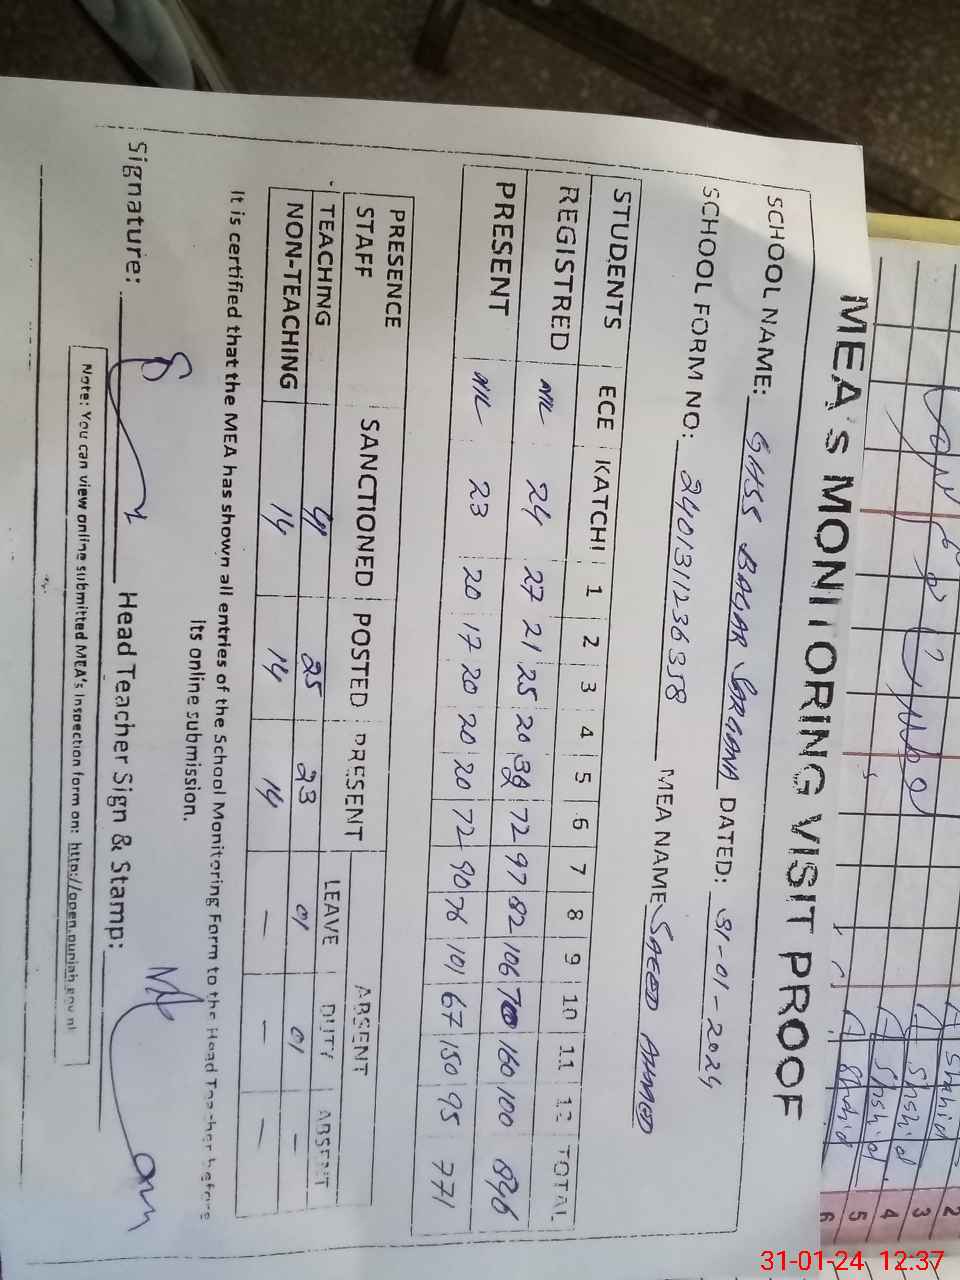 MEA's MONITORING VISIT PROOF
SCHOOL NAME: GHSS BAGAR SARGANA DATED: 31-01-2024
SCHOOL FORM NO: 2401311236358 MEA NAME SAEED AHMED
STUDENTS ECE KATCHI 1 2 3 4 5 6 7 8 9 10 11 12 TOTAL
REGISTRED NIL 24 27 21 25 20 72 97 82 106 160 100 846
PRESENT NIL 23 20 17 20 20 20 72 90 76 101 67 150 95 771
PRESENCE STAFF SANCTIONED POSTED PRESENT ABSENT
LEAVE DUTY ABSENT
TEACHING 25 23 01 01 -
NON-TEACHING 14 14 14 - - -
It is certified that the MEA has shown all entries of the School Monitoring Form to the Head Teacher before
its online submission.
Signature: Head Teacher Sign & Stamp:
Note: You can view online submitted MEA's Inspection form on: http://open.punjab.gov.pk
Shahid
Shahid
Shahid
Shahid
2
3
4
5
6
31-01-24 12:37